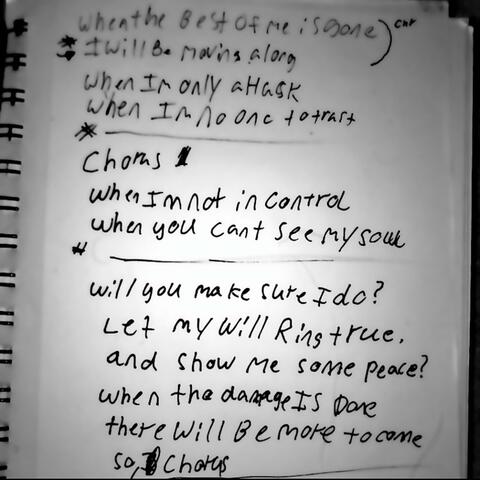 when the Best Of me is Gone
I will Be moving along
when Im only a Husk
when Im no one to trust
Chorus
when Im not in control
when you cant see my soul
will you make sure I do?
Let my will Ring true.
and show me some peace?
when the damage IS Done
there will Be more to come
so, Chorus